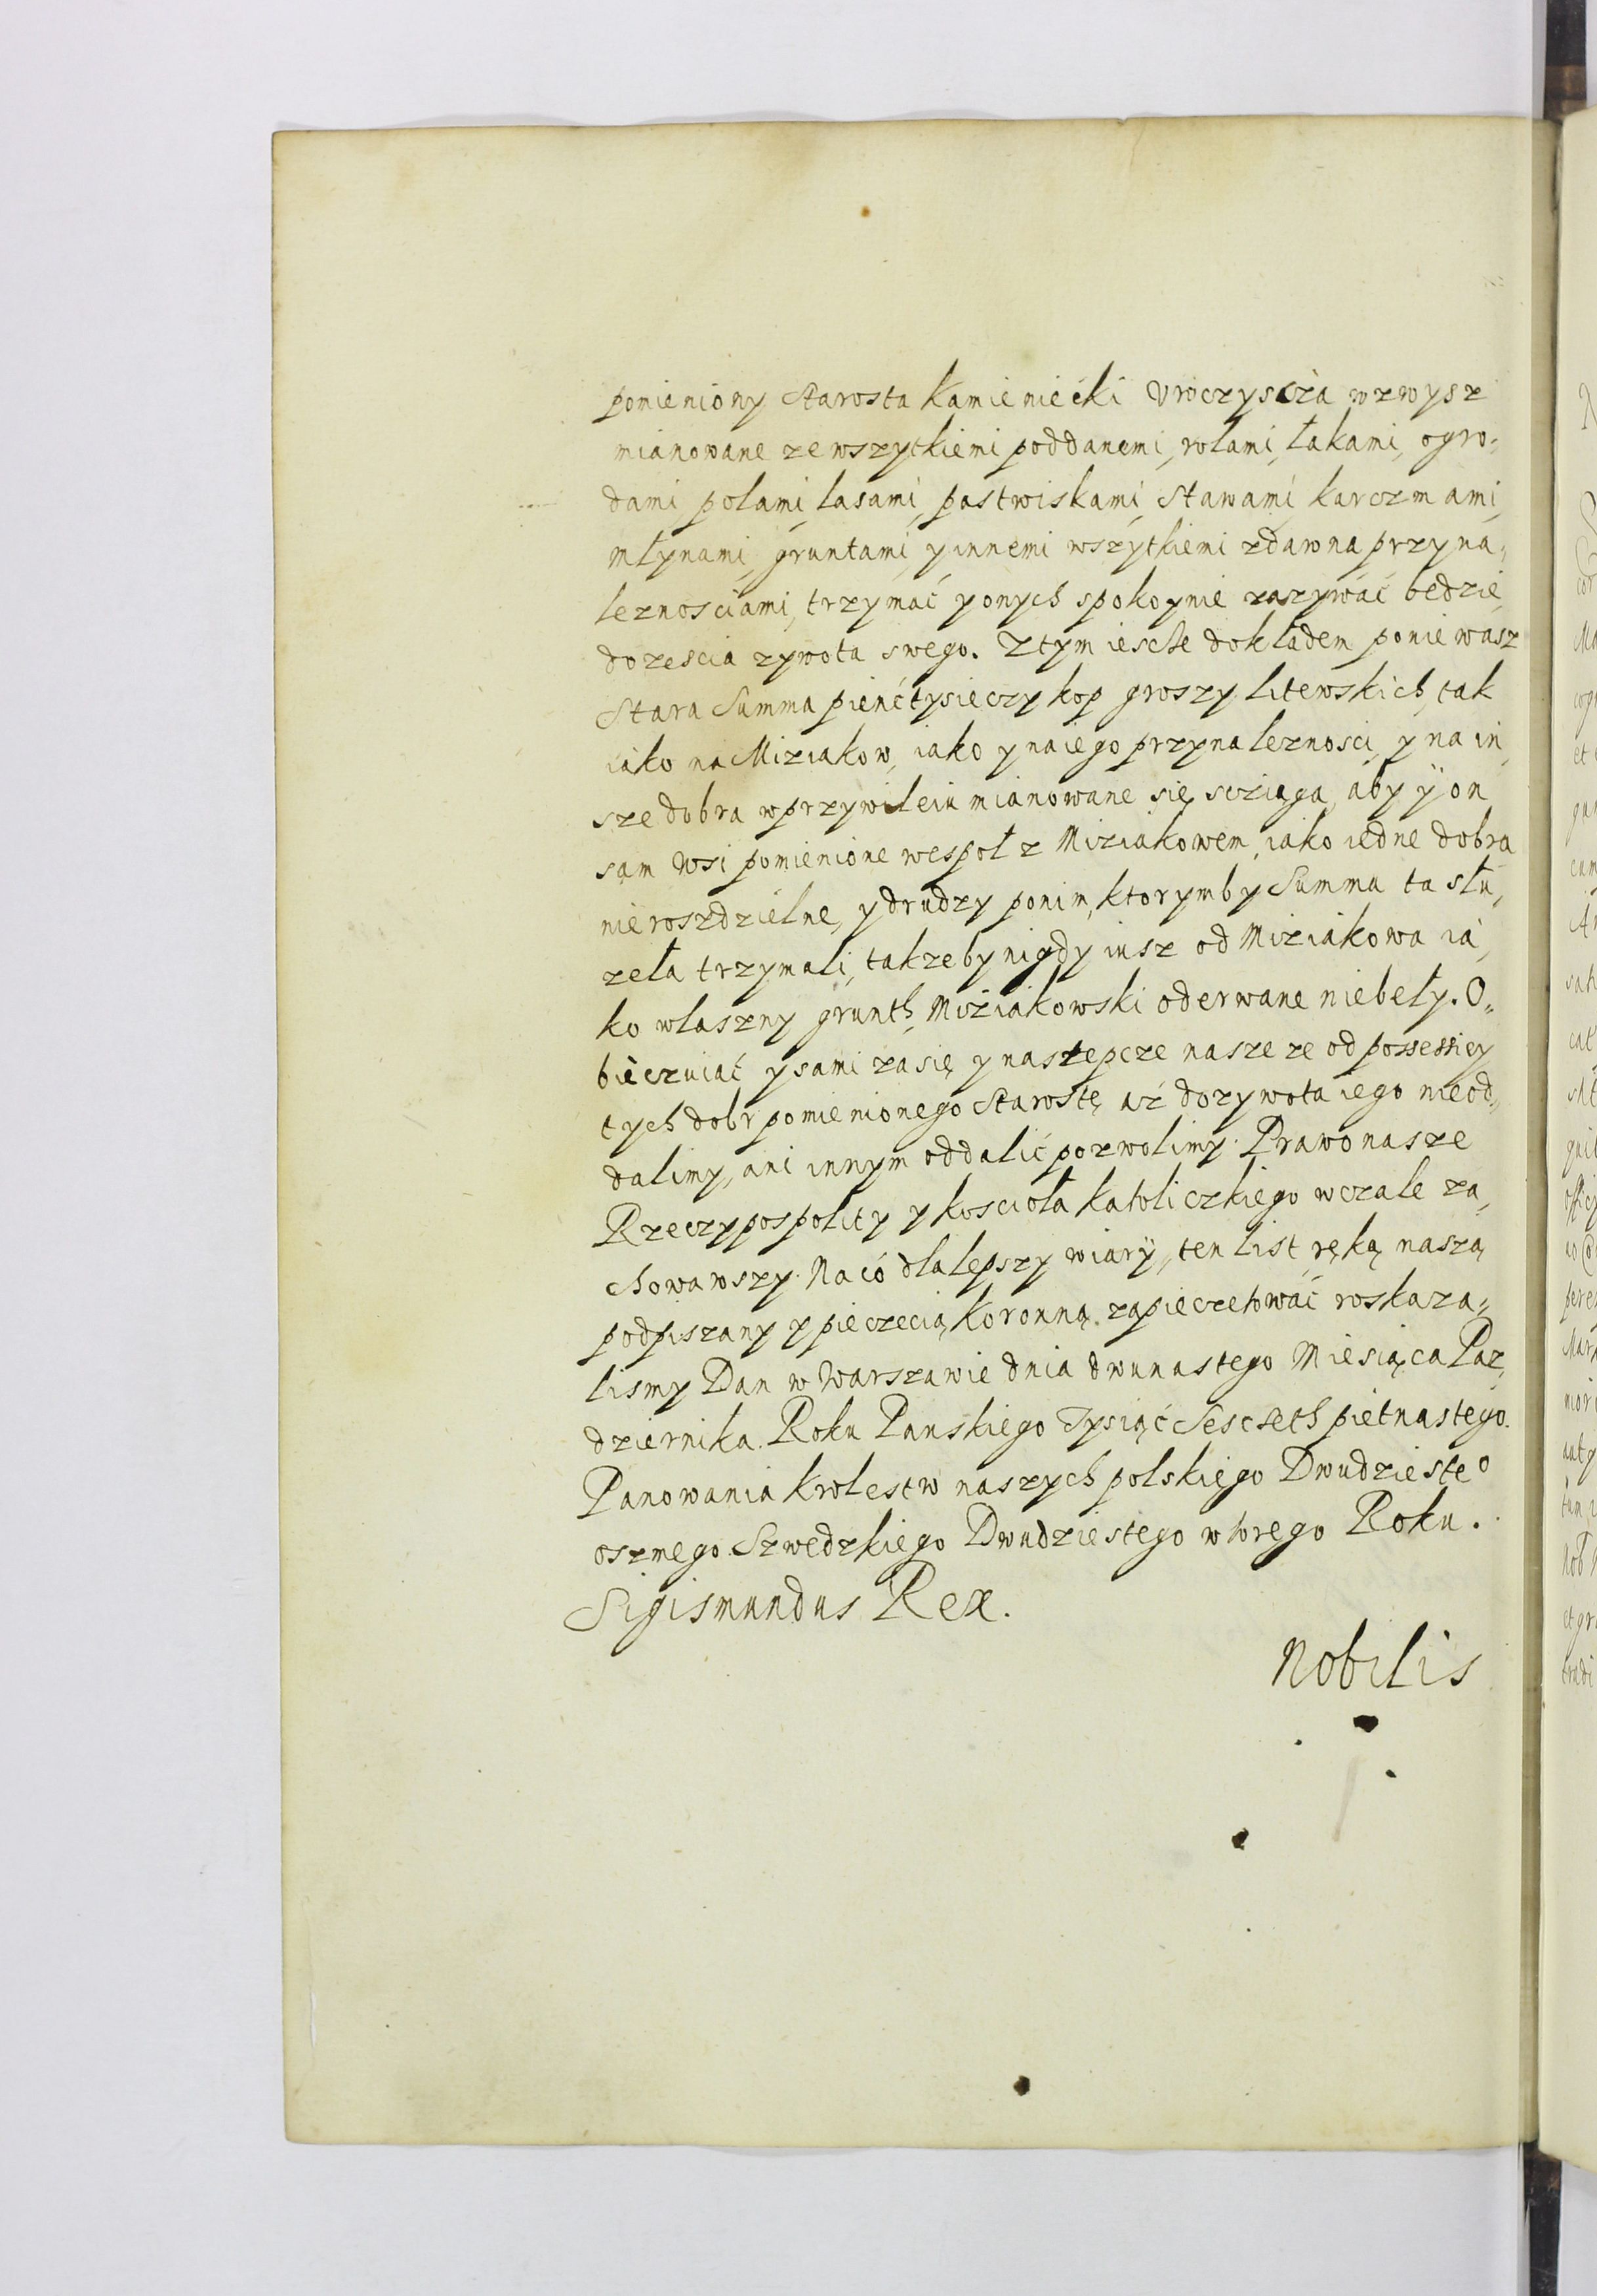 pomieniony Starosta Kamieniecki Vroczyscza wzwysz
mianowane zewszytkiemi poddanemi, rolami, łakami, ogro„
dami polami, lasami, pastwiskami, Stawami, karczmami,
młynami, gruntami, yinnemi wszytkiemi zdawna przyna„
leznosciami, trzymać yonych spokoynie zazywać będzie,
dozescia zywota swego. Ztym iescze dokładem poniewasz
Stara Summa pienćtysieczy kop groszy litewskich, tak
iako na Miziakow, iako ynaiego przynaleznosci, y na in,
sze dobra wprzywileiu mianowane się scziąga, aby ÿ on
sam Wsi pomienione wespoł z Miziakowem, iako iedne dobra
nierozdzielne, ydrudzy ponim, ktorymby Summa ta słu,
zeła trzymali, takzeby nigdy iusz od Miziakowa ia,
ko własny grunth, Miziakowski oderwane niebeły. O„
bieczuiać ysami zasię y nastepcze nasze ze od possessiey
tych dobr pomienionego Starostę aż dozywota iego nieod„
dalimy, ani innym oddalić pozwolimy. Prawo nasze
Rzeczypospolity y koscioła katoliczkiego wczale za,
chowawszy. Na có dla lepszy wiarÿ, ten list ręką naszą
podpiszany y pieczecią koronną zapieczetować roskaza„
lismy Dan w Warszawie dnia dwunastego Miesiąca Paz,
dziernika. Roku Panskiego Tysiąć Sesczeth pietnastego.
Panowania krolestw naszych polskiego Dwudzieste⁰
oszmego. Szwedzkiego Dwudziestego wtorego Roku.
Sigismundus Rex.
Nobilis